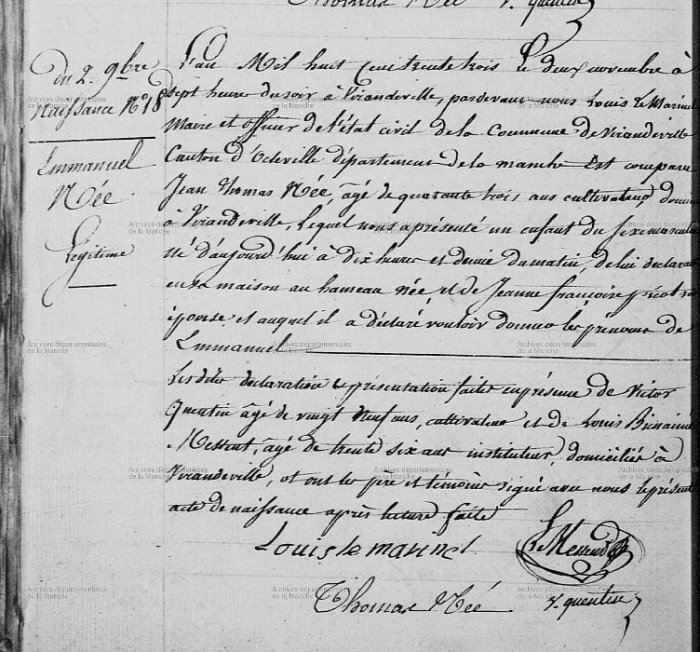 Thomas Née V. quentin
du 2. 9bre
Naissance No. 18
Emmanuel
Née
Légitime
L'an Mil huit Cent trente trois le deux novembre à
Sept heure du soir à Virandeville, pardevant nous Louis Le Marinel
Maire et officier de l'état civil de la Commune de Virandeville
Canton d'Octeville département de la manche Est comparu
Jean Thomas Née, âgé de quarante trois ans cultivateur, domicilié
à Virandeville, Lequel nous a présenté un enfant du sexe masculin
Né d'aujourd'hui à dix heure et demie du matin, de lui déclarant
en sa maison au hameau née et de Jeanne françoise picot son
épouse et auquel il a déclaré vouloir donner les prénoms de
Emmanuel
Lesdites déclaration & présentation faites en présence de Victor
Quentin âgé de vingt Neuf ans, cultivateur et de Louis Bienaimé
Messent, âgé de trente six ans instituteur, domiciliés à
Virandeville, et ont les père et témoins signé avec nous le présent
acte de naissance après lecture faite
Louis le marinel LMessent
Thomas Née V. quentin
Archives départementales
de la Manche